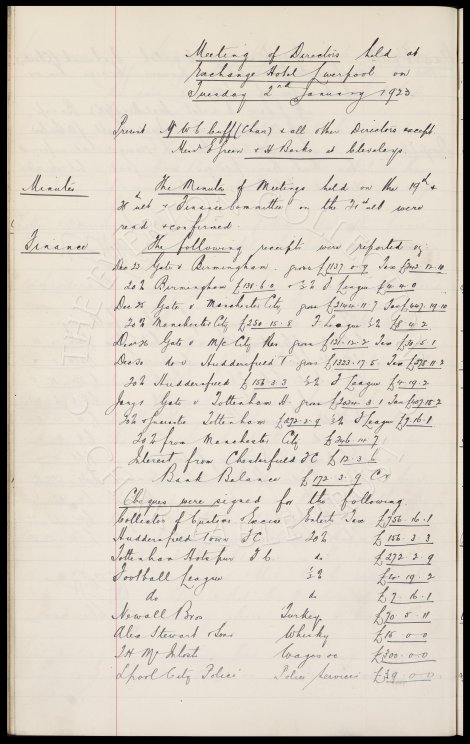 Meeting of Directors held at
Exchange Hotel Liverpool on
Tuesday 2nd January 1923
Present Mr W C Cuff (Chan) & all other Directors except
Messrs E Green & H Banks &
Minutes
The Minutes of Meetings held on the 19th &
ult & Finance Committee on the ult were
read & confirmed.
Finance
The following receipts were reported viz
Dec 23 Gate v Birmingham gross £1137.0.9 Tax
20% Birmingham £131.6.0 ½% F League £4.4.0
Dec 25 Gate v Manchester City gross £2144.11.7 Tax
20% Manchester City £250.15.8 F League ½% £8.4.2
Dec 26 Gate v M/c City Res gross £131.12.2 Tax
Dec 30 do v Huddersfield T gross £1323.17.5 Tax £278.11.2
20% Huddersfield £156.3.3 ½% F League £4.19.2
Jany 1 Gate v Tottenham H. gross Tax
20% & Tottenham £272.2.9 ½% F League £7.16.1
20% from Manchester City £206.14.7
Interest from Chesterfield FC £12.3.6
Bank Balance £172.3.9 Cr
Cheques were signed for the following
Collector of Customs & Excise Enterts Tax £756.16.1
Huddersfield Town F C. 20% £156.3.3
Tottenham Hotspur F C. do £272.2.9
Football League ½% £4.19.2
do do £7.16.1
Newall Bros Turkey £70.5.11
Alex Stewart & Sons Whisky £15.0.0
Wages &c £300.0.0
L'pool City Police Police Services £39.0.0